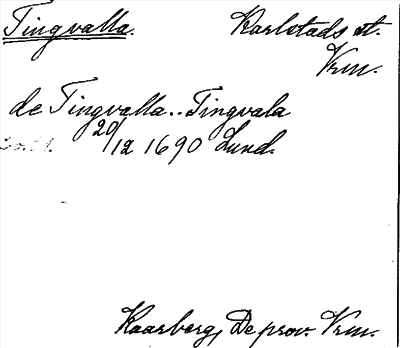 Tingvalla. Karlstads st.
Vrm.
de Tingvalla..Tingvala
20/12 1690 Lund.
Kaarberg, De prov. Vrm.